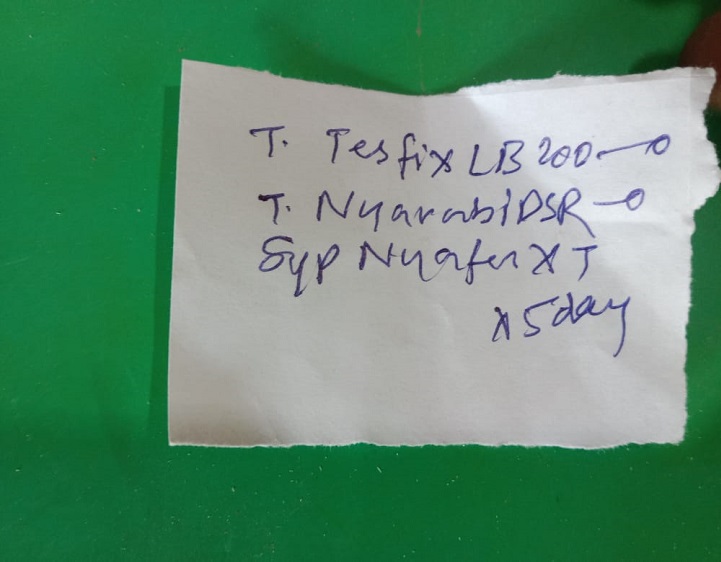 T. Tesfix LB 200 —o
T. NyarabiDSR —o
Syp Nyafer XT
x 5 day